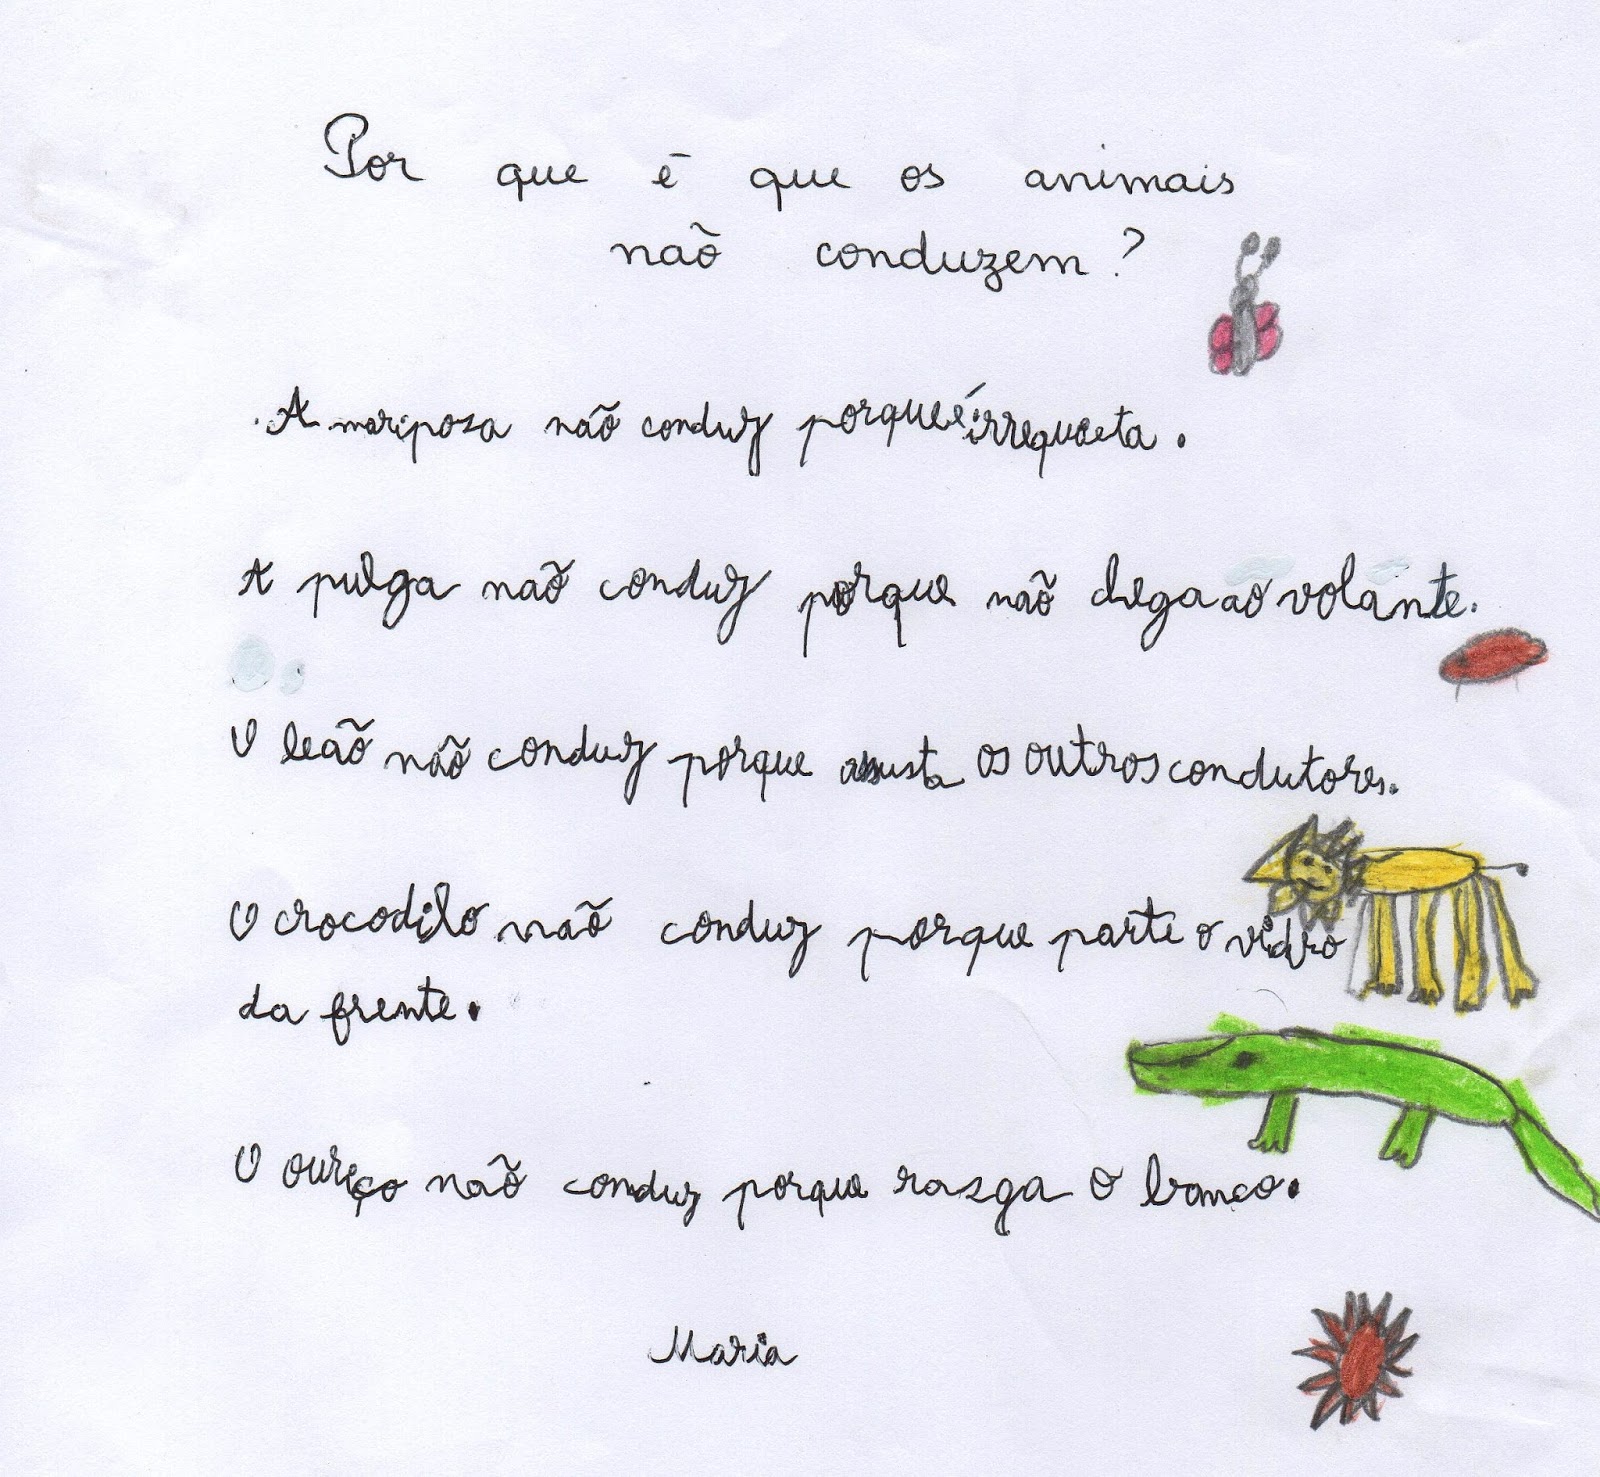 Por que é que os animais
não conduzem?
A mariposa não conduz porque é irrequieta.
A pulga não conduz porque não chega ao volante.
O leão não conduz porque assusta os outros condutores.
O crocodilo não conduz porque parte o vidro
da frente.
O ouriço não conduz porque rasga o banco.
Maria